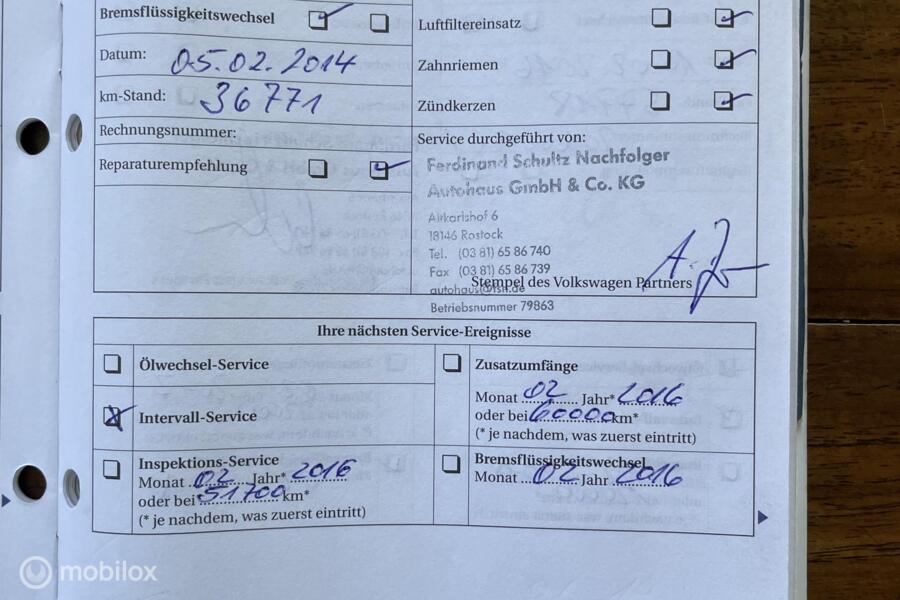 Bremsflüssigkeitswechsel
Datum: 05.02.2014
km-Stand: 36 771
Rechnungsnummer:
Reparaturempfehlung
Luftfiltereinsatz
Zahnriemen
Zündkerzen
Service durchgeführt von:
Ferdinand Schultz Nachfolger
Autohaus GmbH & Co. KG
18146 Rostock
Tel. (03 81) 65 86 740
Fax (03 81) 65 86 739
autohaus@fsn.de
Stempel des Volkswagen Partners
Betriebsnummer 79863
Ihre nächsten Service-Ereignisse
Ölwechsel-Service
Intervall-Service
Inspektions-Service
Monat 02 Jahr* 2016
oder bei 51700 km*
(* je nachdem, was zuerst eintritt)
Zusatzumfänge
Monat 02 Jahr* 2016
oder bei 60000 km*
(* je nachdem, was zuerst eintritt)
Bremsflüssigkeitswechsel
Monat 02 Jahr 2016
mobilox